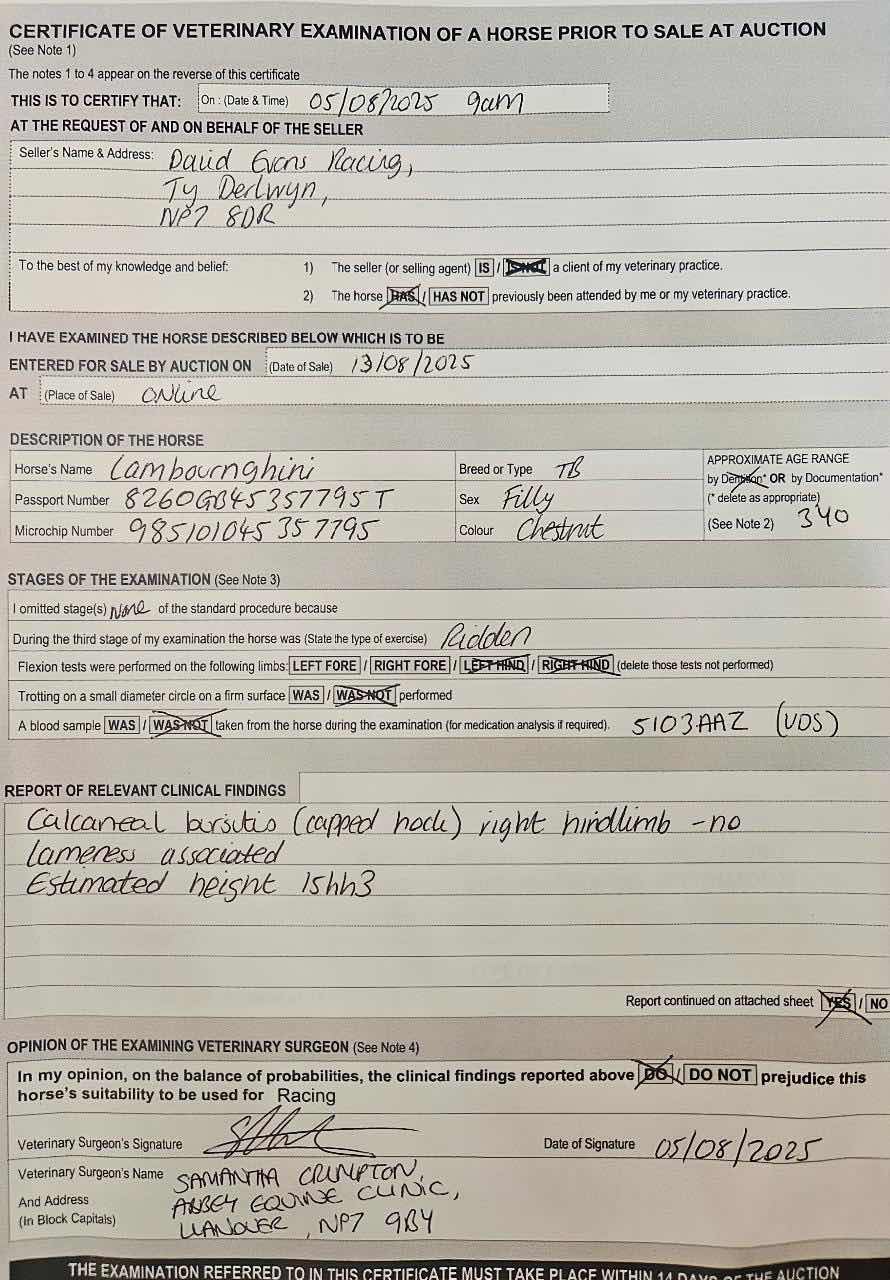 CERTIFICATE OF VETERINARY EXAMINATION OF A HORSE PRIOR TO SALE AT AUCTION
(See Note 1)
The notes 1 to 4 appear on the reverse of this certificate
THIS IS TO CERTIFY THAT: On : (Date & Time) 05/08/2025 9am
AT THE REQUEST OF AND ON BEHALF OF THE SELLER
Seller's Name & Address: David Evans Racing,
Ty Derlwyn,
NP7 8DR
To the best of my knowledge and belief: 1) The seller (or selling agent) IS / IS NOT a client of my veterinary practice.
2) The horse HAS / HAS NOT previously been attended by me or my veterinary practice.
I HAVE EXAMINED THE HORSE DESCRIBED BELOW WHICH IS TO BE
ENTERED FOR SALE BY AUCTION ON (Date of Sale) 13/08/2025
AT (Place of Sale) online
DESCRIPTION OF THE HORSE
Horse's Name Lambournghini Breed or Type TB APPROXIMATE AGE RANGE
by Dentition* OR by Documentation*
Passport Number 8260GB45357795T Sex Filly (* delete as appropriate)
Microchip Number 985101045357795 Colour Chestnut (See Note 2) 3yo
STAGES OF THE EXAMINATION (See Note 3)
I omitted stage(s) None of the standard procedure because
During the third stage of my examination the horse was (State the type of exercise) Ridden
Flexion tests were performed on the following limbs: LEFT FORE / RIGHT FORE / LEFT HIND / RIGHT HIND (delete those tests not performed)
Trotting on a small diameter circle on a firm surface WAS / WAS NOT performed
A blood sample WAS / WAS NOT taken from the horse during the examination (for medication analysis if required). 5103AAZ (VDS)
REPORT OF RELEVANT CLINICAL FINDINGS
Calcaneal bursitis (capped hock) right hindlimb - no
lameness associated
Estimated height 15hh3
Report continued on attached sheet YES / NO
OPINION OF THE EXAMINING VETERINARY SURGEON (See Note 4)
In my opinion, on the balance of probabilities, the clinical findings reported above DO / DO NOT prejudice this
horse's suitability to be used for Racing
Veterinary Surgeon's Signature Date of Signature 05/08/2025
Veterinary Surgeon's Name SAMANTHA CRUMPTON,
And Address ABBEY EQUINE CLINIC,
(In Block Capitals) LLANOVER, NP7 9BY
THE EXAMINATION REFERRED TO IN THIS CERTIFICATE MUST TAKE PLACE WITHIN 14 DAYS OF THE AUCTION